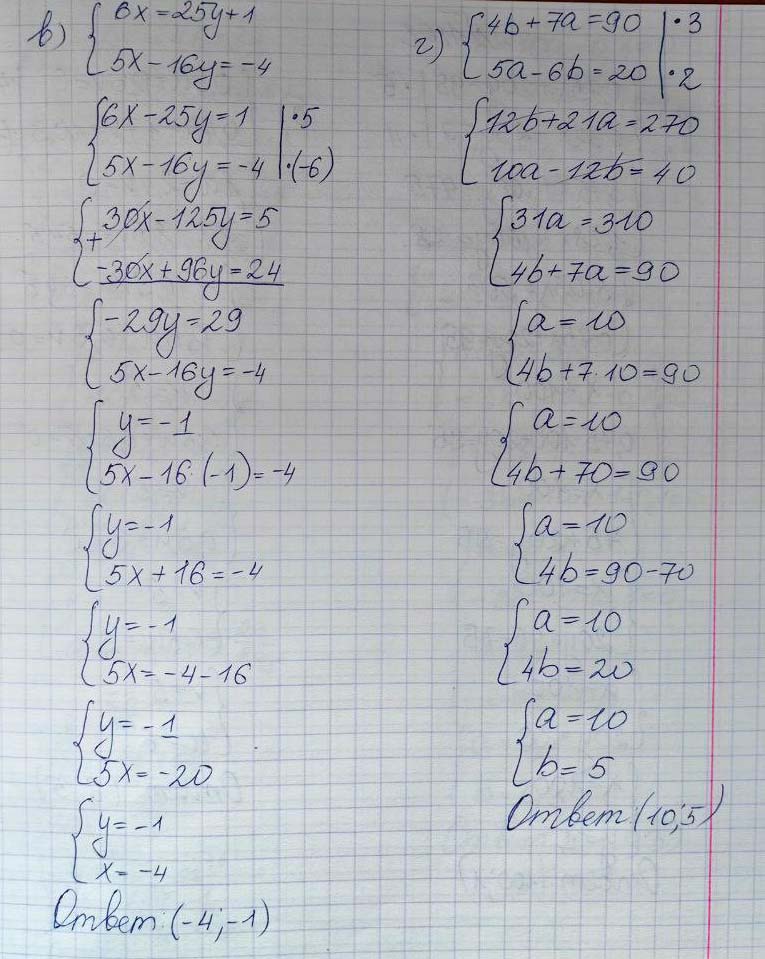 в) { 6x = 25y + 1
5x - 16y = -4
{ 6x - 25y = 1 | · 5
5x - 16y = -4 | · (-6)
{ + 30x - 125y = 5
-30x + 96y = 24
{ -29y = 29
5x - 16y = -4
{ y = -1
5x - 16 · (-1) = -4
{ y = -1
5x + 16 = -4
{ y = -1
5x = -4 - 16
{ y = -1
5x = -20
{ y = -1
x = -4
Ответ: (-4; -1)
г) { 4b + 7a = 90 | · 3
5a - 6b = 20 | · 2
{ 12b + 21a = 270
10a - 12b = 40
{ 31a = 310
4b + 7a = 90
{ a = 10
4b + 7 · 10 = 90
{ a = 10
4b + 70 = 90
{ a = 10
4b = 90 - 70
{ a = 10
4b = 20
{ a = 10
b = 5
Ответ: (10; 5)